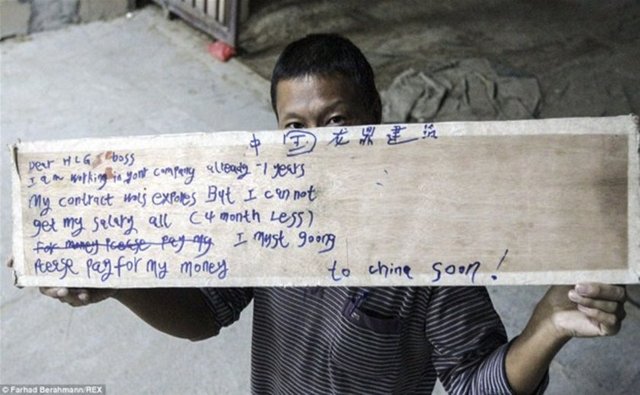 中国龙鼎建筑
Dear HLG boss
I am working in yont company already -1 years
My contract was expores But I can not
get my salary all (4 month Less)
For money Please pay my I myst going
Please pay for my money to china soon!
© Farhad Berahmann/REX